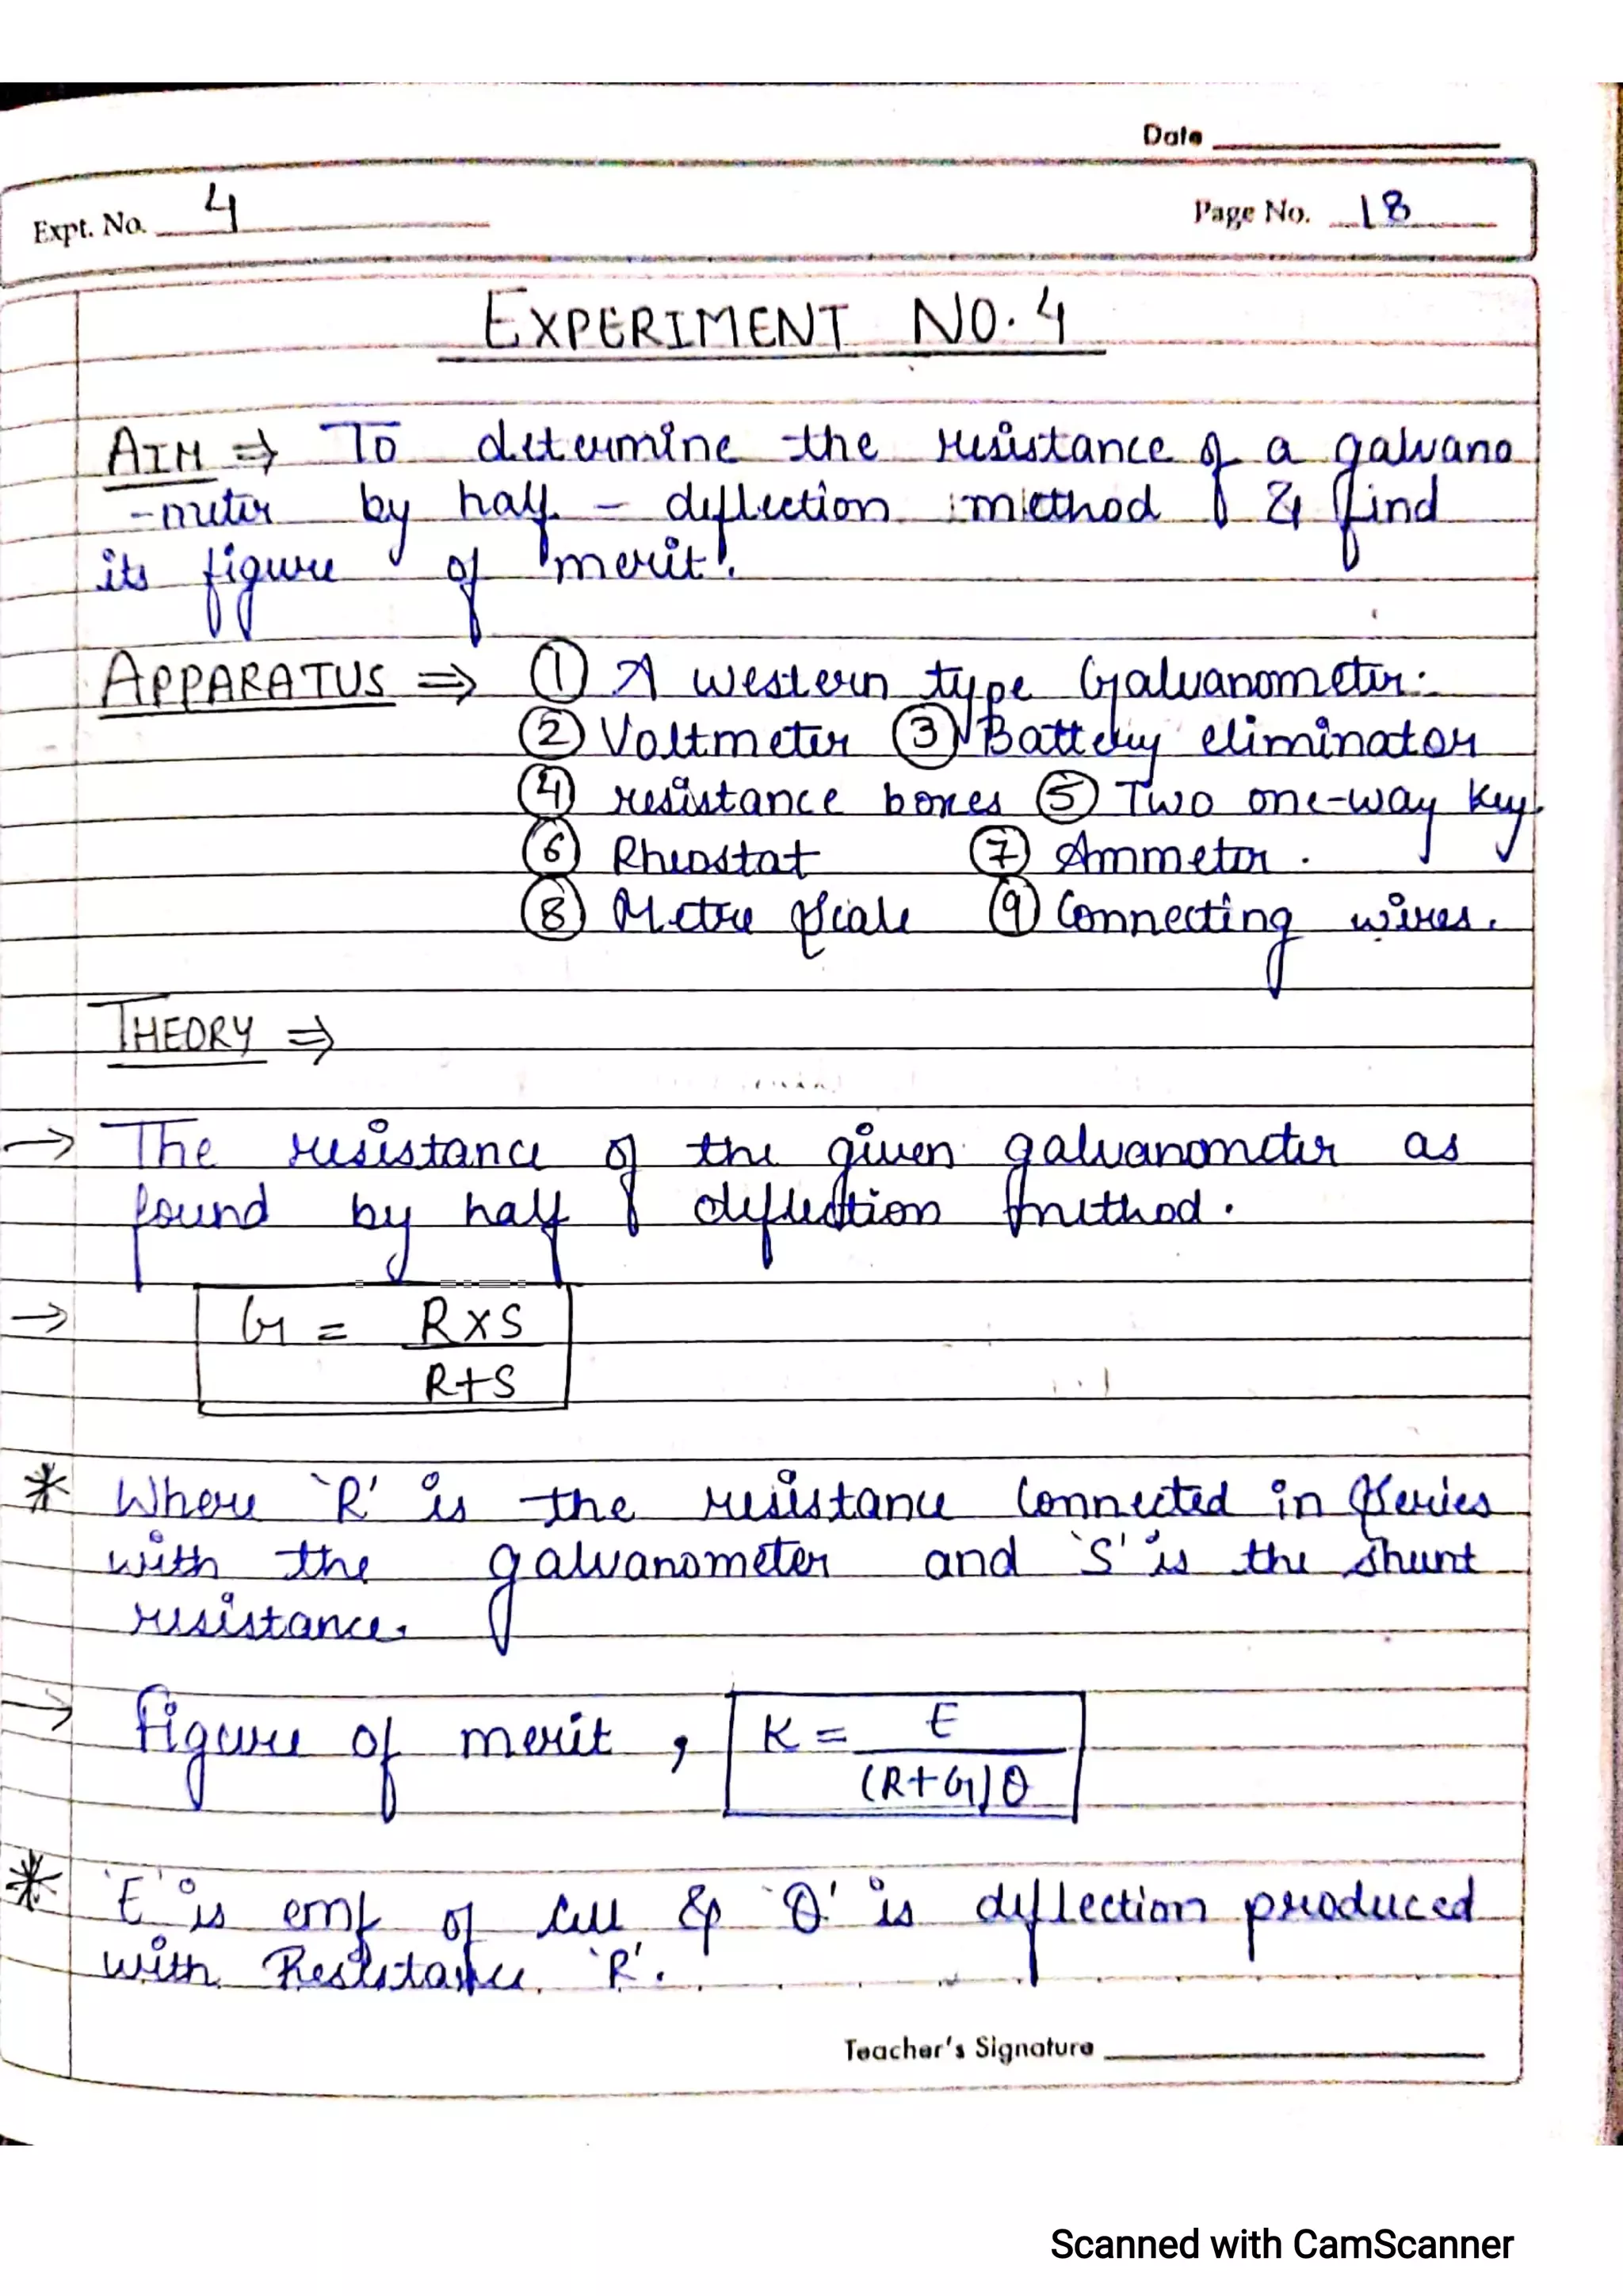 Date
Expt. No. 4
Page No. 18
EXPERIMENT NO. 4
AIM ⇒ To determine the resistance of a galvano
-meter by half - deflection method & find
its figure of merit.
APPARATUS ⇒ ① A western type Galvanometer.
② Voltmeter ③ Battery eliminator
④ resistance boxes ⑤ Two one-way key.
⑥ Rheostat ⑦ Ammeter.
⑧ Metre Scale ⑨ Connecting wires.
THEORY ⇒
→ The resistance of the given galvanometer as
found by half deflection method.
→ G = R×S
R+S
* Where 'R' is the resistance Connected in Series
with the galvanometer and 'S' is the shunt
resistance.
→ Figure of merit, K = E
(R+G)θ
* 'E' is emf of cell & 'θ' is deflection produced
with Resistance 'R'.
Teacher's Signature
Scanned with CamScanner